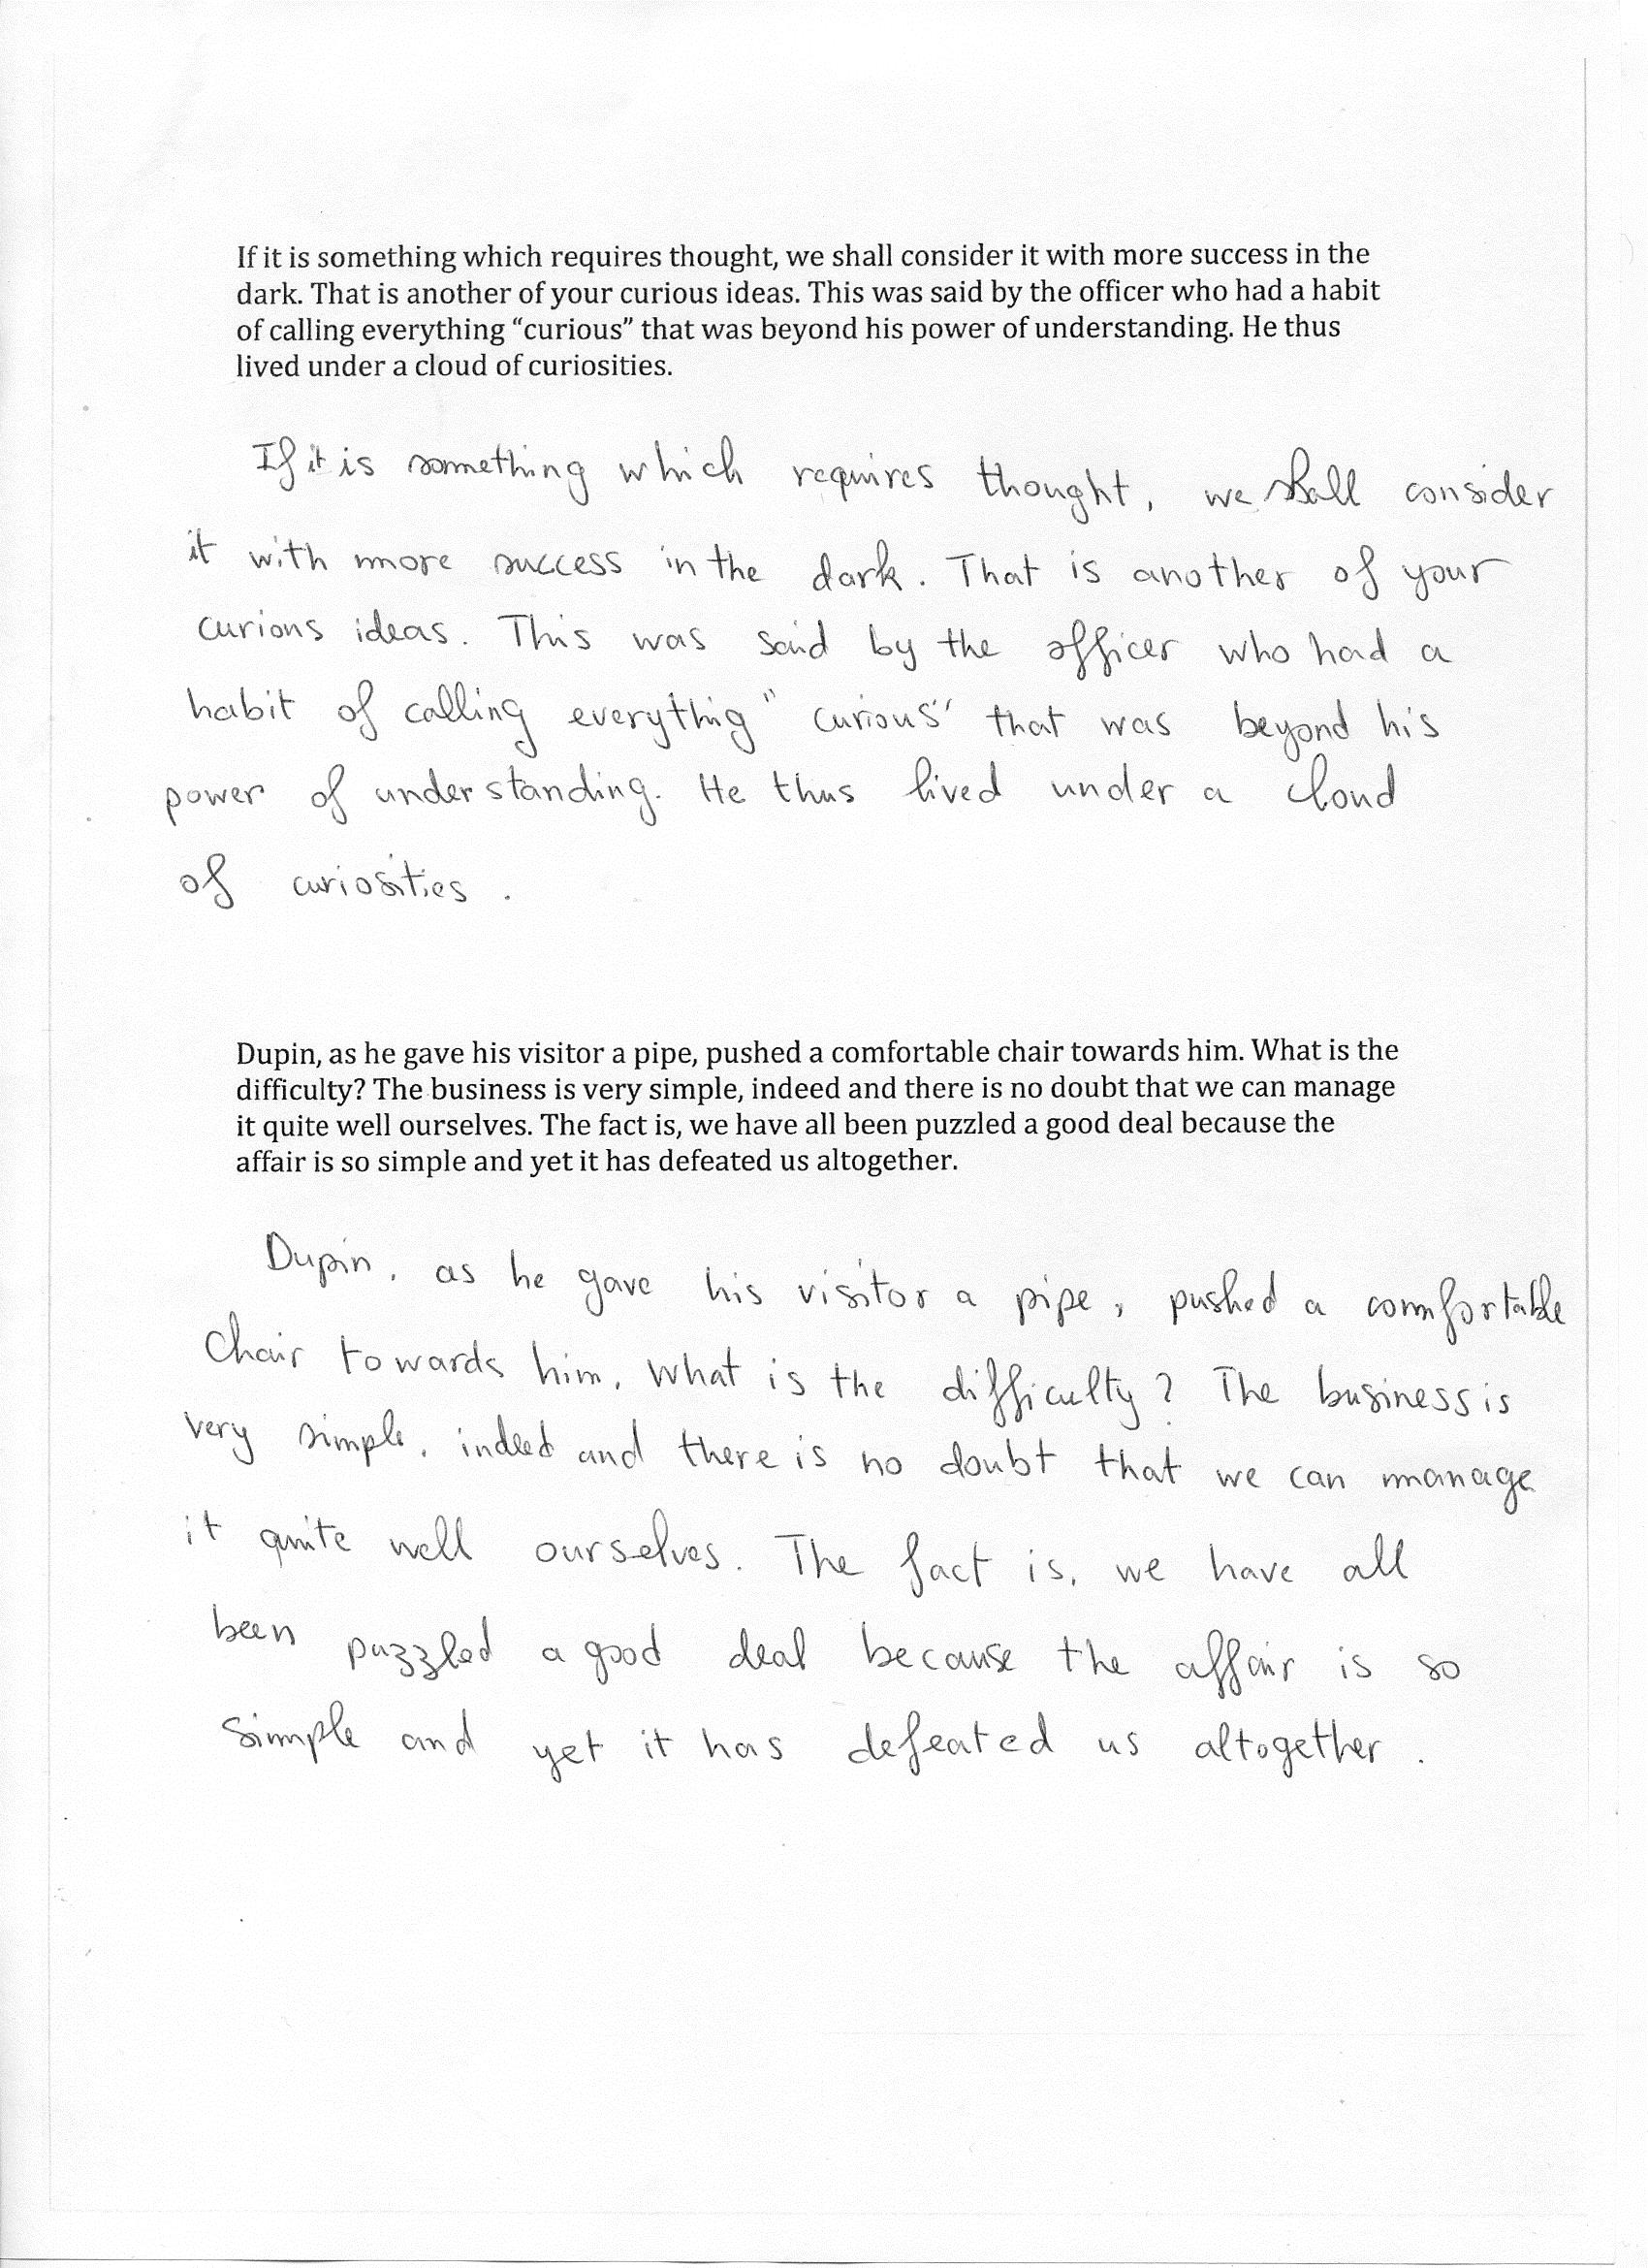 If it is something which requires thought, we shall consider it with more success in the
dark. That is another of your curious ideas. This was said by the officer who had a habit
of calling everything “curious” that was beyond his power of understanding. He thus
lived under a cloud of curiosities.
If it is something which requires thought, we shall consider
it with more success in the dark. That is another of your
curious ideas. This was said by the officer who had a
habit of calling everythig "curious" that was beyond his
power of understanding. He thus lived under a cloud
of curiosities.
Dupin, as he gave his visitor a pipe, pushed a comfortable chair towards him. What is the
difficulty? The business is very simple, indeed and there is no doubt that we can manage
it quite well ourselves. The fact is, we have all been puzzled a good deal because the
affair is so simple and yet it has defeated us altogether.
Dupin, as he gave his visitor a pipe, pushed a comfortable
Chair towards him. What is the difficulty? The business is
very simple, indeed and there is no doubt that we can manage
it quite well ourselves. The fact is, we have all
been puzzled a good deal because the affair is so
simple and yet it has defeated us altogether.